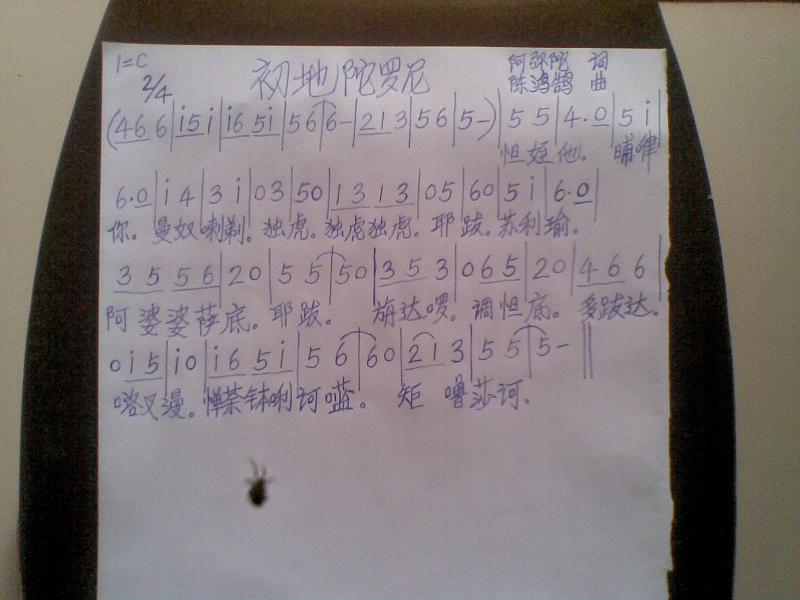 1=C
2/4
初地陀罗尼
阿弥陀 词
陈鸿鹄 曲
(4 6 6|i 5 i|i 6 5 i|5 6|6 -|2 1 3|5 6|5 -)|5 5|4 · 0|5 i|
怛姪他。 晡嘽
6 · 0|i 4|3 i|0 3|5 0|1 3 1 3|0 5|6 0|5 i|6 · 0|
你。曼奴喇剃。独虎。独虎独虎。耶跋。苏利瑜。
3 5 5 6|2 0|5 5|5 0|3 5 3|0 6 5|2 0|4 6 6|
阿婆婆萨底。耶跋。 旃达啰。调怛底。多跋达。
0 i 5|i 0|i 6 5 i|5 6|6 0|2 1 3|5 5|5 - ‖
咯叉漫。惮荼钵唎诃嚂。 矩 噜莎诃。